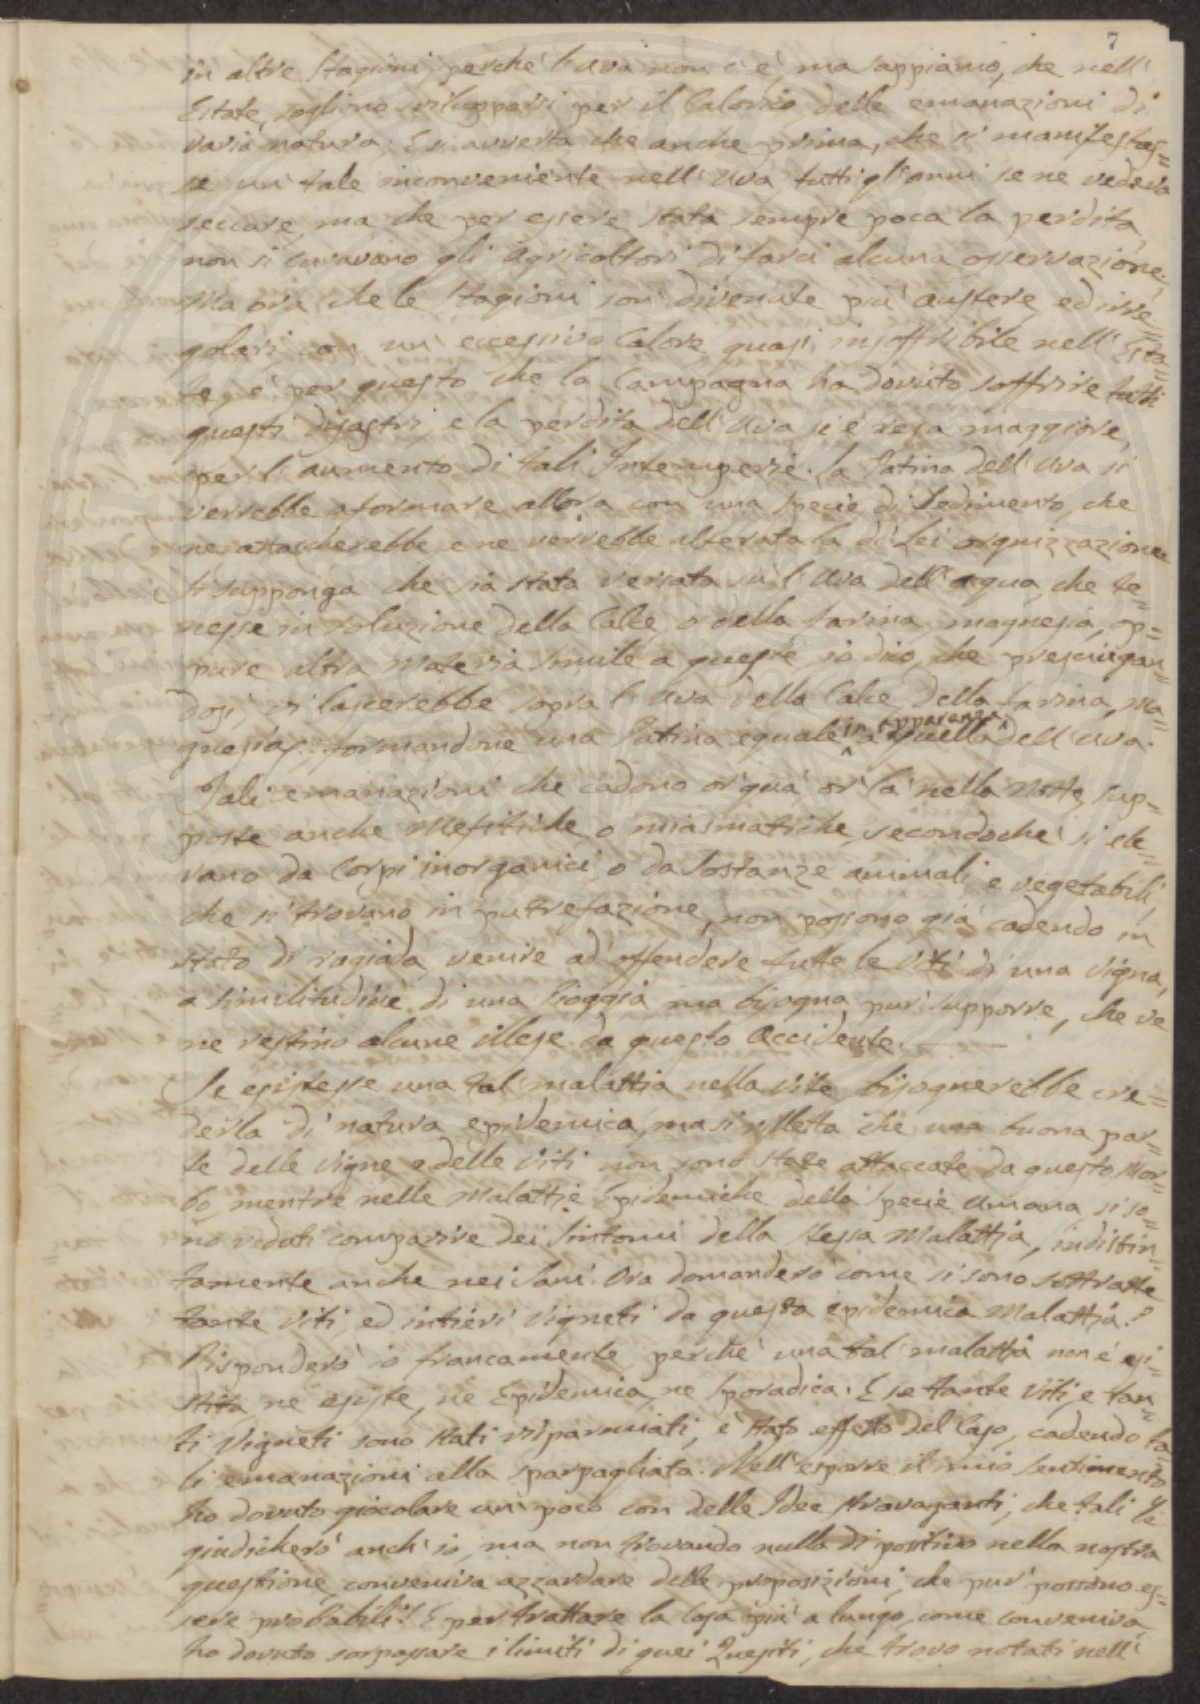 7
in altre Stagioni, perchè l'uva non c'è, ma sappiamo, che nell'
Estate, sogliono svilupparsi per il Calorico delle emanazioni di
varia natura. E si avverta che anche prima, che si manifestas=
se un' tale inconveniente nell' Uva tutti gl'anni se ne vedeva
seccare, ma che per essere stata sempre poca la perdita,
non si curavano gli Agricoltori di farci alcuna osservazione.
Ma ora, che le Stagioni son' divenute più austere, ed irre=
golari con un' eccessivo Calore quasi insoffribile nell' Esta=
te, e' per questo che la Campagna ha dovuto soffrire tutti
questi disastri, e la perdita dell' Uva si è resa maggiore,
per l'aumento di tali Intemperie. La Patina dell' Uva si
verrebbe a formare allora con una specie di Sedimento, che
ne attaccherebbe, e ne verrebbe alterata la di Lei organizzazione
Si supponga che sia stata versata su l'Uva dell' acqua, che te=
nesse in soluzione della Calce, o della farina, magnesia, op=
pure altra Materia simile a queste, io dico, che prosciugan=
dosi, vi lascerebbe sopra l'Uva della Calce, della farina, ma=
gnesia, formandone una Patina eguale in apparenza a quella dell' Uva.
Tali emanazioni che cadono or' quà or' là nella Notte, sup=
poste anche Mefitiche, o miasmatiche, secondochè si ele=
vano da Corpi inorganici, o da Sostanze animali, e vegetabili,
che si trovano in putrefazione, non possono già cadendo in
stato di rugiada venire ad offendere tutte le Viti di una Vigna,
a similitudine di una Pioggia, ma bisogna pur' supporre, che ve
ne restino alcune illese da questo Accidente.
Se esistesse una tal' malattia nella Vite, bisognerebbe cre=
derla di natura epidemica, ma si rifletta che una buona par=
te delle Vigne e delle Viti non sono state attaccate da questo Mor=
bo, mentre nelle Malattie Epidemiche della Specie Umana, si so=
no veduti comparire dei Sintomi della stessa Malattia, indistin=
tamente anche nei Sani. Ora domanderò come si sono sottratte
tante Viti, ed intieri Vigneti da questa epidemica Malattia?
Risponderò io francamente, perchè una tal' malattia non è esi=
stita ne esiste, ne Epidemica, ne Sporadica. E se tante Viti, e tan=
ti Vigneti sono stati risparmiati, è stato effetto del Caso, cadendo ta=
li emanazioni alla sparpagliata. Nell' esporre il mio sentimento
ho dovuto giocolare un' poco con delle Idee stravaganti, che tali le
giudicherò anch' io, ma non trovando nulla di positivo nella nostra
questione, conveniva azzardare delle proposizioni, che pur' possono es=
sere probabili! E per trattare la Cosa più a lungo, come conveniva
ho dovuto sorpassare i limiti di quei Quesiti, che trovo notati nell'